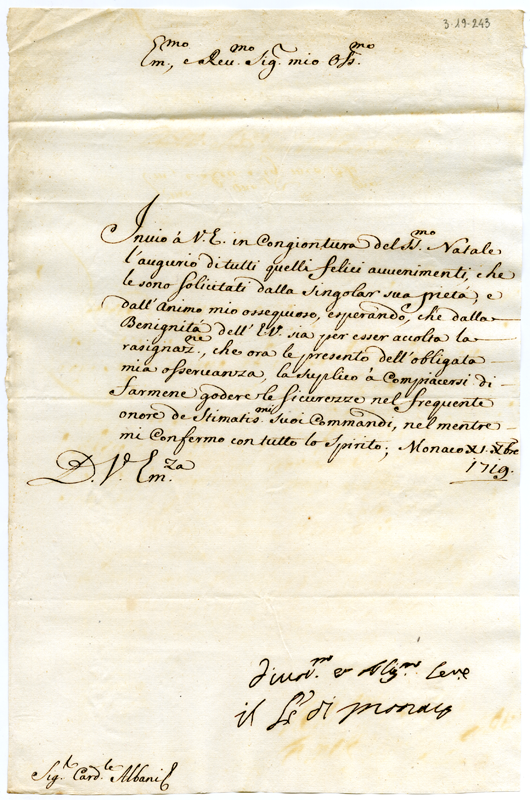 3-19-243
Em.mo, e Reu.mo Sig.r mio Oss.mo
Inuio á V.E. in Congiontura del SS.mo Natale
l'augurio di tutti quelli felici auuenimenti, che
le sono sollicitati dalla singolar sua pietá, e
dall'Animo mio ossequioso, esperando, che dalla
Benignitá dell'E.V. sia per esser accolta la
rasignaz.ne, che ora le presento dell'obligata
mia osseruanza, la suplico á Compiacersi di
farmene godere le sicurezze nel frequente
onore de stimatis.mi suoi Commandi, nel mentre
mi Confermo con tutto lo spirito; Monaco XI. Xbre
1719.
D. V. Em.za
diuot.mo et oblig.mo
il di Monaco
Sig.r Card.le Albani